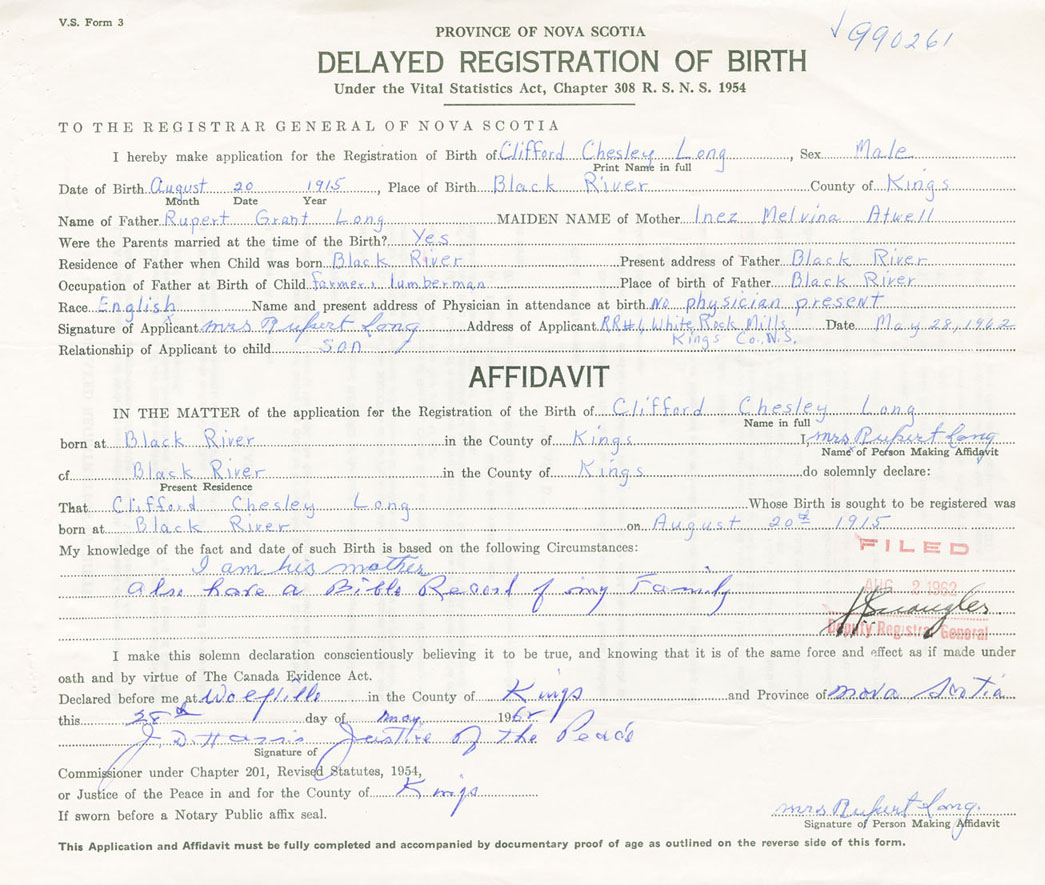 V.S. Form 3
990261
PROVINCE OF NOVA SCOTIA
DELAYED REGISTRATION OF BIRTH
Under the Vital Statistics Act, Chapter 308 R. S. N. S. 1954
TO THE REGISTRAR GENERAL OF NOVA SCOTIA
I hereby make application for the Registration of Birth of Clifford Chesley Long, Sex Male
Print Name in full
Date of Birth August 20 1915, Place of Birth Black River County of Kings
Month Date Year
Name of Father Rupert Grant Long MAIDEN NAME of Mother Inez Melvina Atwell
Were the Parents married at the time of the Birth? Yes
Residence of Father when Child was born Black River Present address of Father Black River
Occupation of Father at Birth of Child farmer, lumberman Place of birth of Father Black River
Race English Name and present address of Physician in attendance at birth No physician present
Signature of Applicant Mrs Rupert Long Address of Applicant RR#1, White Rock Mills Date May 28, 1962
Kings Co., N.S.
Relationship of Applicant to child son
AFFIDAVIT
IN THE MATTER of the application for the Registration of the Birth of Clifford Chesley Long
Name in full
born at Black River in the County of Kings I, Mrs Rupert Long
Name of Person Making Affidavit
of Black River in the County of Kings do solemnly declare:
Present Residence
That Clifford Chesley Long Whose Birth is sought to be registered was
born at Black River on August 20th 1915
My knowledge of the fact and date of such Birth is based on the following Circumstances:
FILED
I am his mother
also have a Bible Record of my Family
AUG 2 1962
Deputy Registrar General
I make this solemn declaration conscientiously believing it to be true, and knowing that it is of the same force and effect as if made under
oath and by virtue of The Canada Evidence Act.
Declared before me at Wolfville in the County of Kings and Province of Nova Scotia
this 28th day of May 1962
J. D. Harris Justice of the Peace
Signature of
Commissioner under Chapter 201, Revised Statutes, 1954,
or Justice of the Peace in and for the County of Kings
If sworn before a Notary Public affix seal.
Mrs Rupert Long.
Signature of Person Making Affidavit
This Application and Affidavit must be fully completed and accompanied by documentary proof of age as outlined on the reverse side of this form.